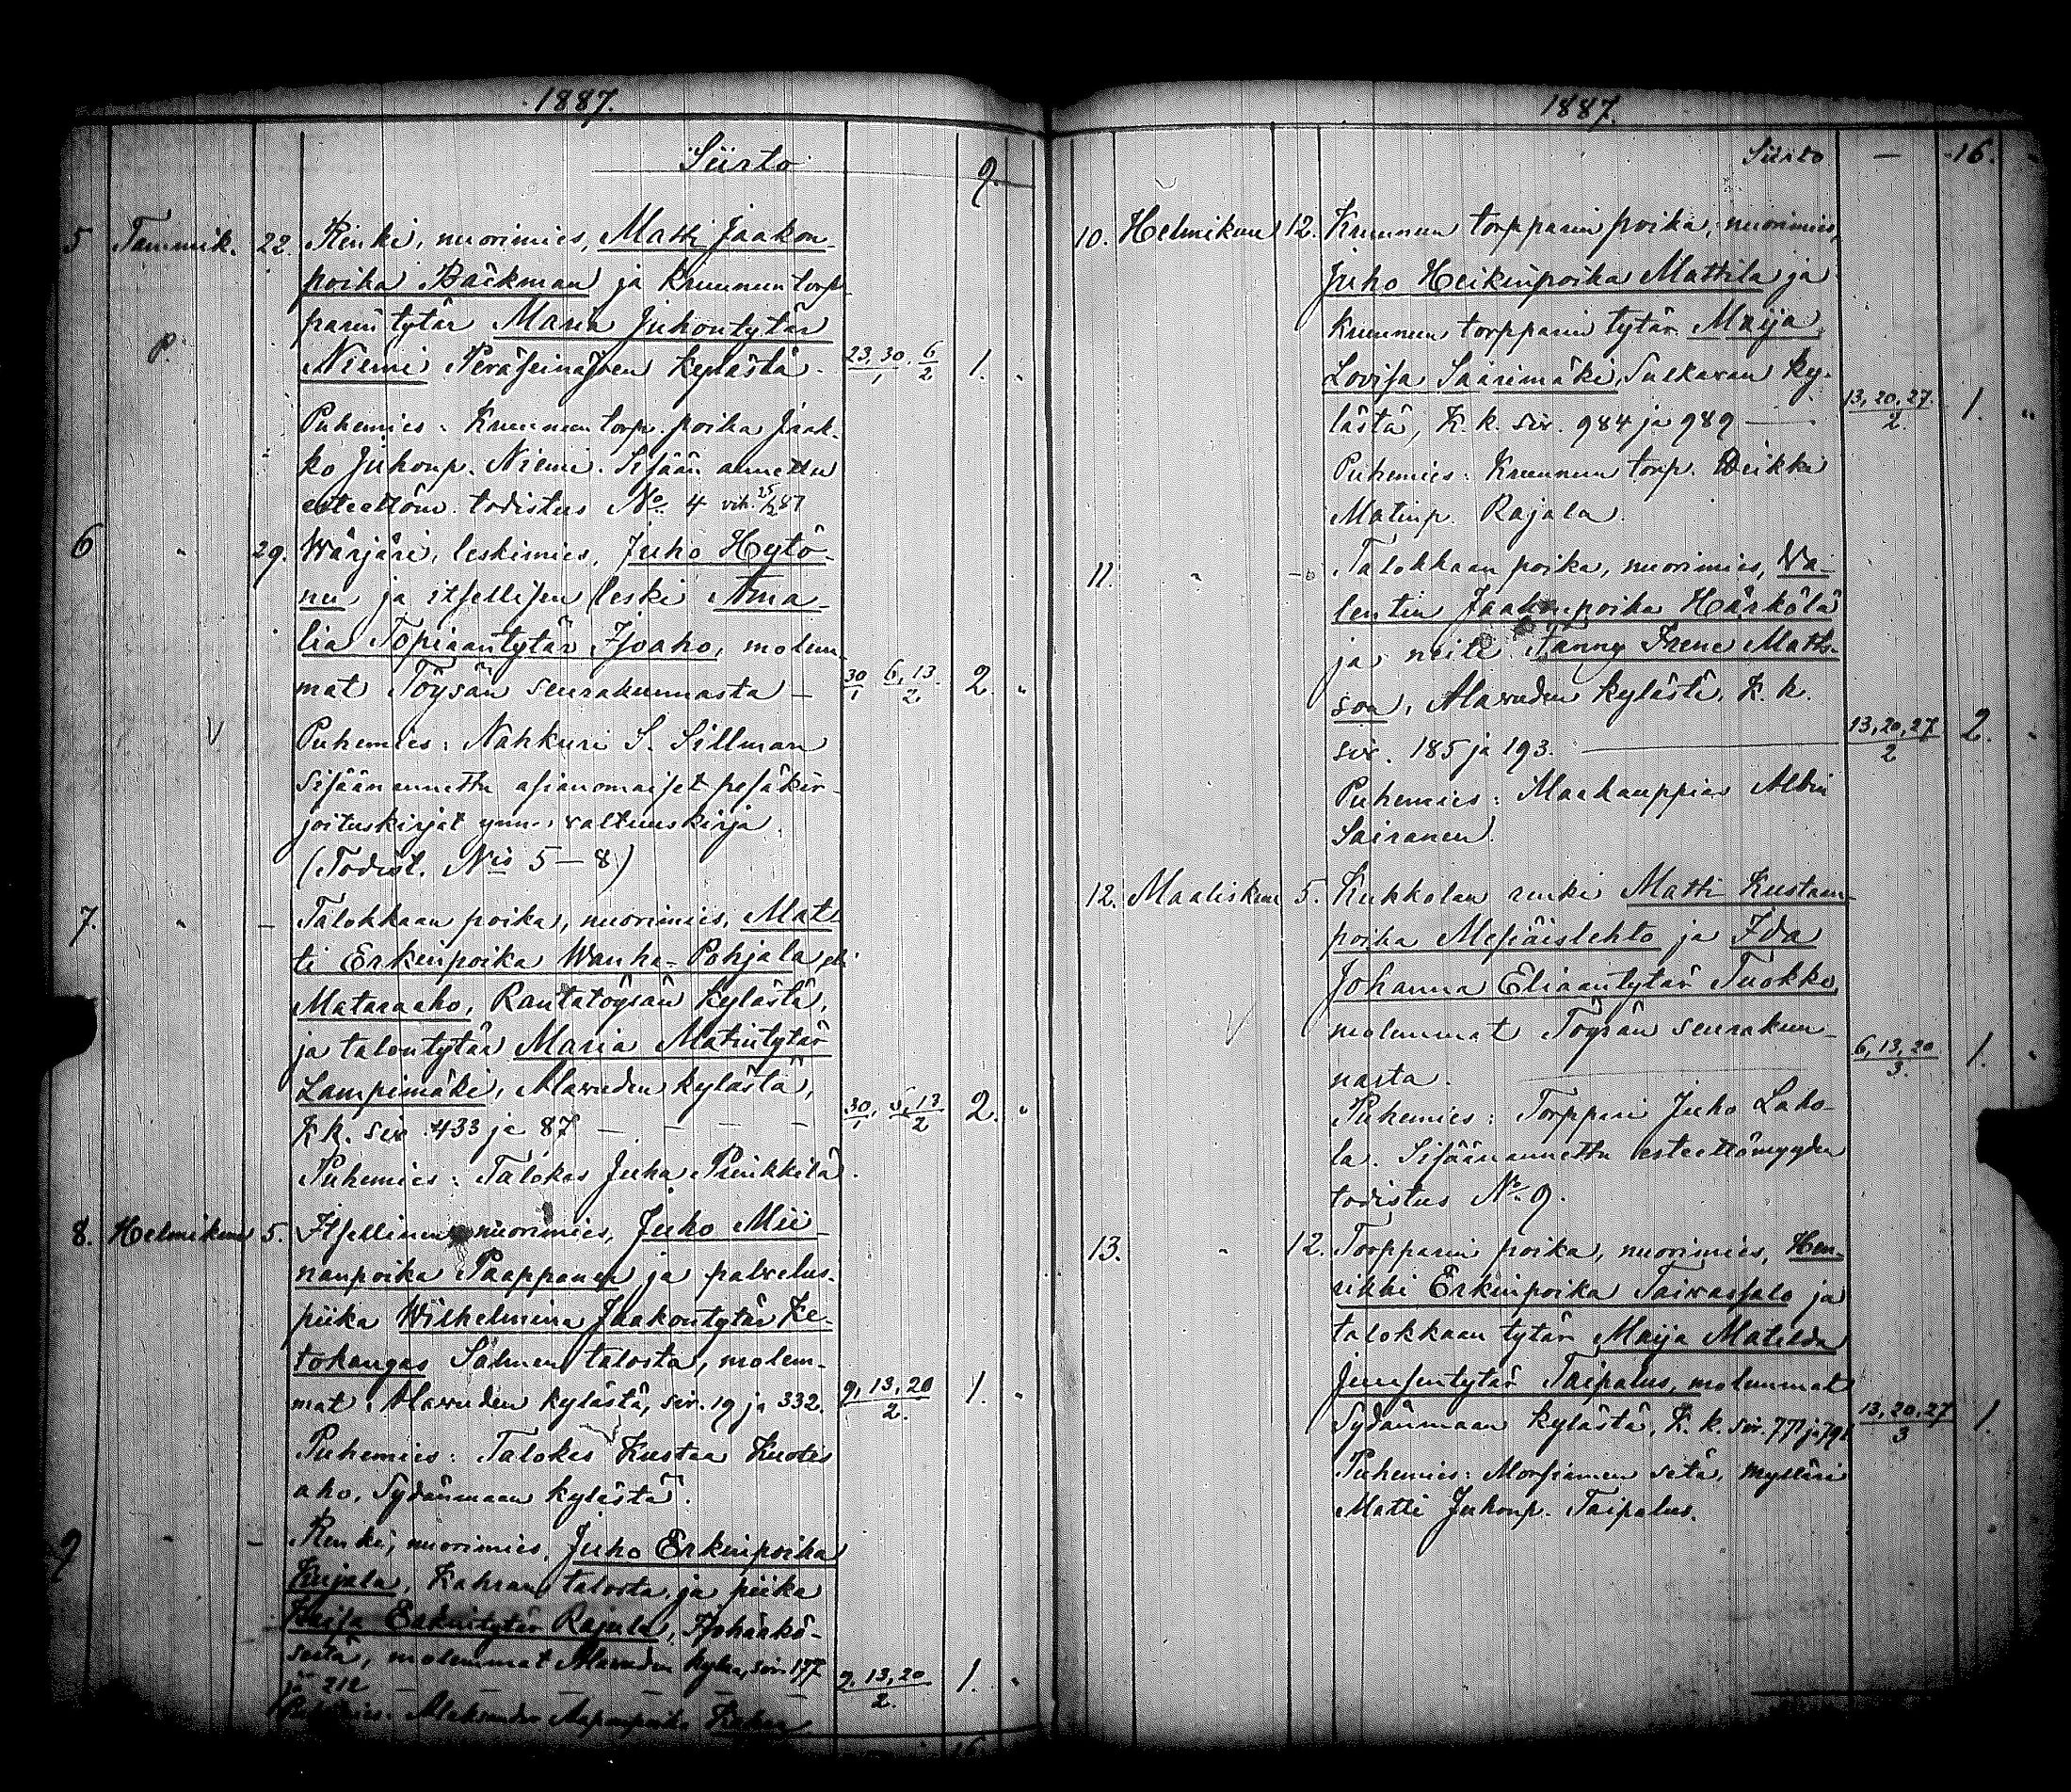 1887.
Siirto 9.
5 Tammik. 22. Renki, nuorimies, Matti Jaakon-
poika Bäckman ja Kruunun torp-
parin tytär Maria Juhontytär
P. Niemi Peräseinäjoen kylästä. 23, 30/1, 6/2 1. "
Puhemies: Kruunun torp. poika Jaak-
ko Juhonp. Niemi. Sisään annettu
esteettöm. todistus No. 4 vih. 25/2 87
6 " 29. Wärjäri, leskimies, Juho Hytö-
nen, ja itsellisen leski Ama-
lia Topiaantytär Isoaho, molem-
mat Töysän seurakunnasta – 30/1, 6, 13/2. 2. "
V Puhemies: Nahkuri S. Sillman
Sisäänannettu asianomaiset pesäkir-
joituskirjat ynnä valtuuskirja
(Todist. Nis 5–8)
7. " – Talokkaan poika, nuorimies, Mat-
ti Erkinpoika Wanha-Pohjala eli
Mataraaho, Rantatöysän kylästä,
ja talontytär Maria Matintytär
Lampimäki, Alavuden kylästä,
K k. siv. 433 ja 87 – – – – 30/1, 6, 13/2 2. "
Puhemies: Talokas Juha Pienikkilä.
8. Helmikuu 5. Itsellinen nuorimies, Juho Mii-
nanpoika Paappanen ja palvelus-
piika Wilhelmina Jaakontytär Ke-
tokangas Salmen talosta, molem-
mat Alavuden kylästä, siv. 19 ja 332. 9, 13, 20/2. 1. "
Puhemies: Talokas Kustaa Kuotes-
aho, Sydänmaan kylästä.
9 " – Renki, nuorimies, Juho Erkinpoika
Kujala, Kahran talosta, ja piika
Kaisa Erkintytär Rajala, Isohärkö-
sestä, molemmat Alavuden kylää, siv. 177
ja 212 – – – – – 9, 13, 20/2. 1. "
Puhemies: Aleksander Aaponpoika Kahra
16
1887.
Siirto – 16.
10. Helmikuu 12. Kruunun torpparin poika, nuorimies,
Juho Heikinpoika Mattila ja
Kruunun torpparin tytär Maija
Lovisa Saarimäki, Sulkavan ky-
lästä, K. k. siv. 984 ja 989 – 13, 20, 27./2. 1. "
Puhemies: Kruunun torp. Heikki
Matinp. Rajala.
11. " – Talokkaan poika, nuorimies, Wa-
lentin Jaakonpoika Härkölä
ja neiti Fanny Irene Maths-
son, Alavuden kylästä, K. k.
siv. 185 ja 193. – 13, 20, 27/2 2. "
Puhemies: Maakauppias Albin
Sairanen.
12. Maaliskuu 5. Kukkolan renki Matti Kustaan-
poika Mesiäislehto ja Ida
Johanna Eliaantytär Tuokko,
V molemmat Töysän seurakun-
nasta. 6, 13, 20/3. 1. "
Puhemies: Torppari Juho Laho-
la. Sisäänannettu esteettömyyden
todistus No. 9.
13. " 12. Torpparin poika, nuorimies, Hen-
rikki Erkinpoika Taivassalo ja
talokkaan tytär Maija Matilda
Junusentytär Taipalus, molemmat
Sydänmaan kylästä, K. k. siv. 771 ja 791 13, 20, 27/3 1.
Puhemies: Morsiamen setä, mylläri
Matti Juhonp. Taipalus.